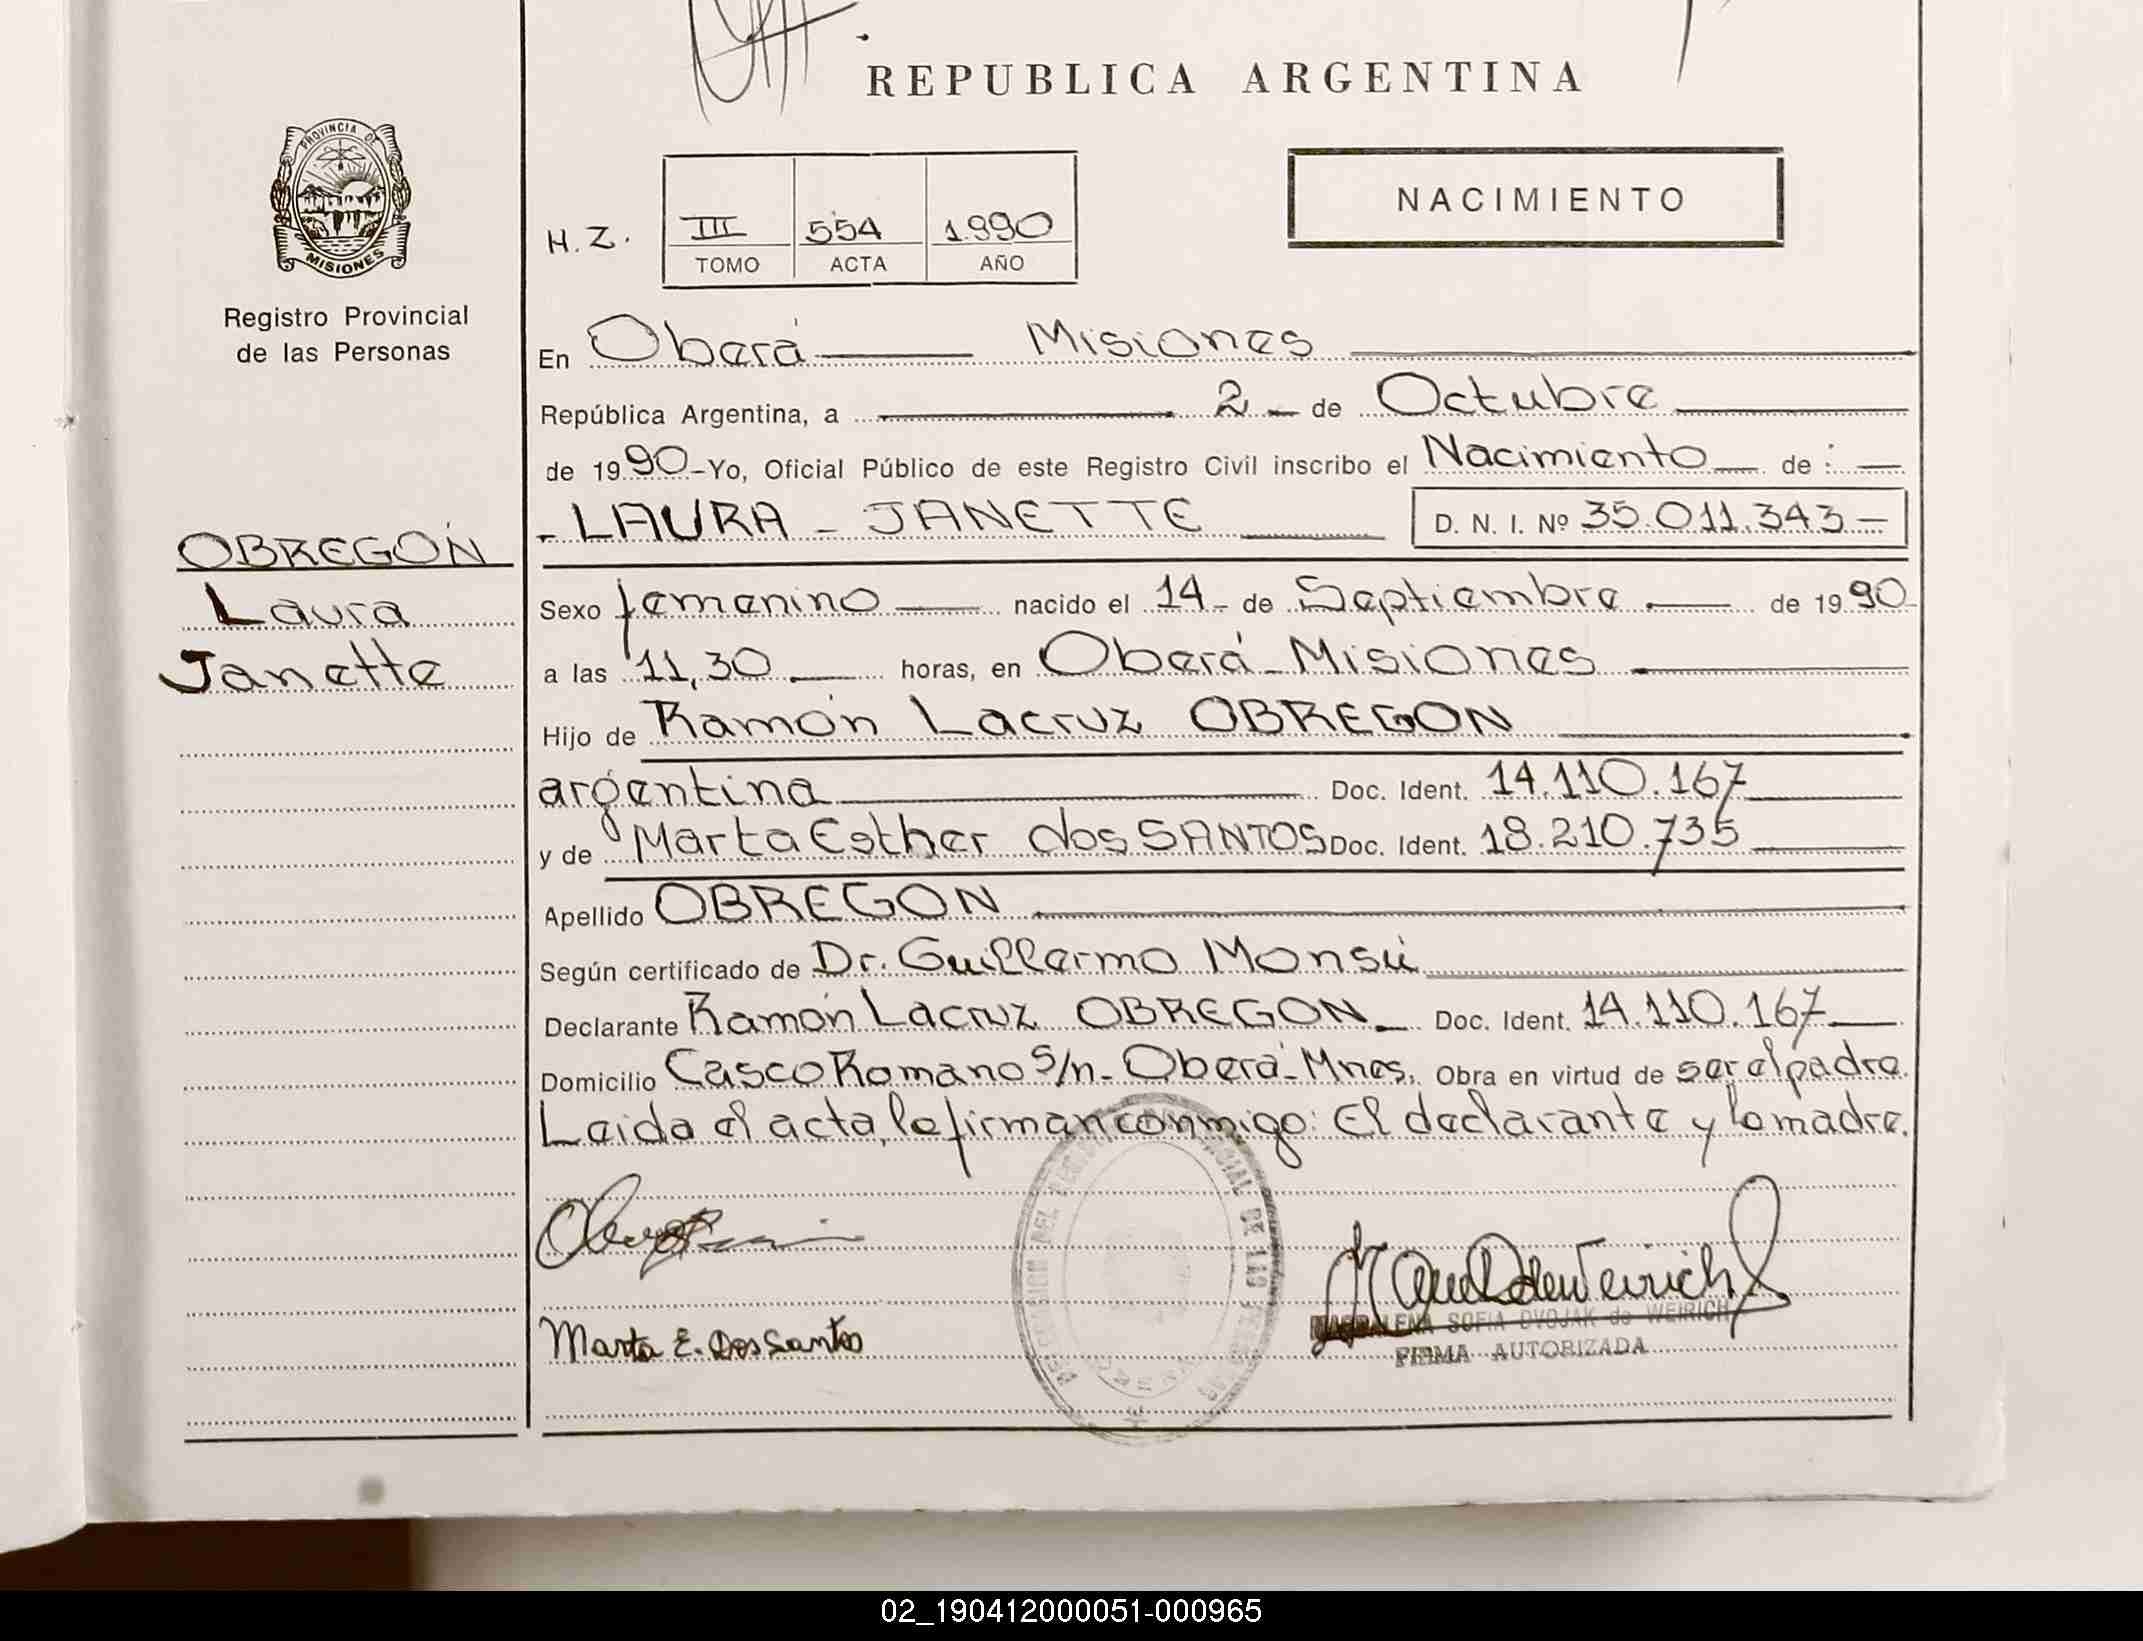 REPUBLICA ARGENTINA
PROVINCIA DE
MISIONES
Registro Provincial
de las Personas
NACIMIENTO
H.Z. III 554 1.990
TOMO ACTA AÑO
En Oberá Misiones
República Argentina, a 2 de Octubre
de 1990 - Yo, Oficial Público de este Registro Civil inscribo el Nacimiento de :
- LAURA - JANETTE D. N. I. Nº 35.011.343 -
OBREGÓN
Laura
Janette
Sexo femenino nacido el 14 - de Septiembre de 1990
a las 11,30 horas, en Oberá - Misiones
Hijo de Ramón Lacruz OBREGON
argentina Doc. Ident. 14.110.167
y de Marta Esther dos SANTOS Doc. Ident. 18.210.735
Apellido OBREGON
Según certificado de Dr. Guillermo Monsú
Declarante Ramón Lacruz OBREGON Doc. Ident. 14.110.167
Domicilio Casco Romano s/n - Oberá - Mnes. Obra en virtud de ser el padre.
Leida el acta, la firman conmigo: El declarante y la madre.
Marta E. Dos Santos
MAGDALENA SOFIA DVOJAK de WEIRICH
FIRMA AUTORIZADA
02_190412000051-000965